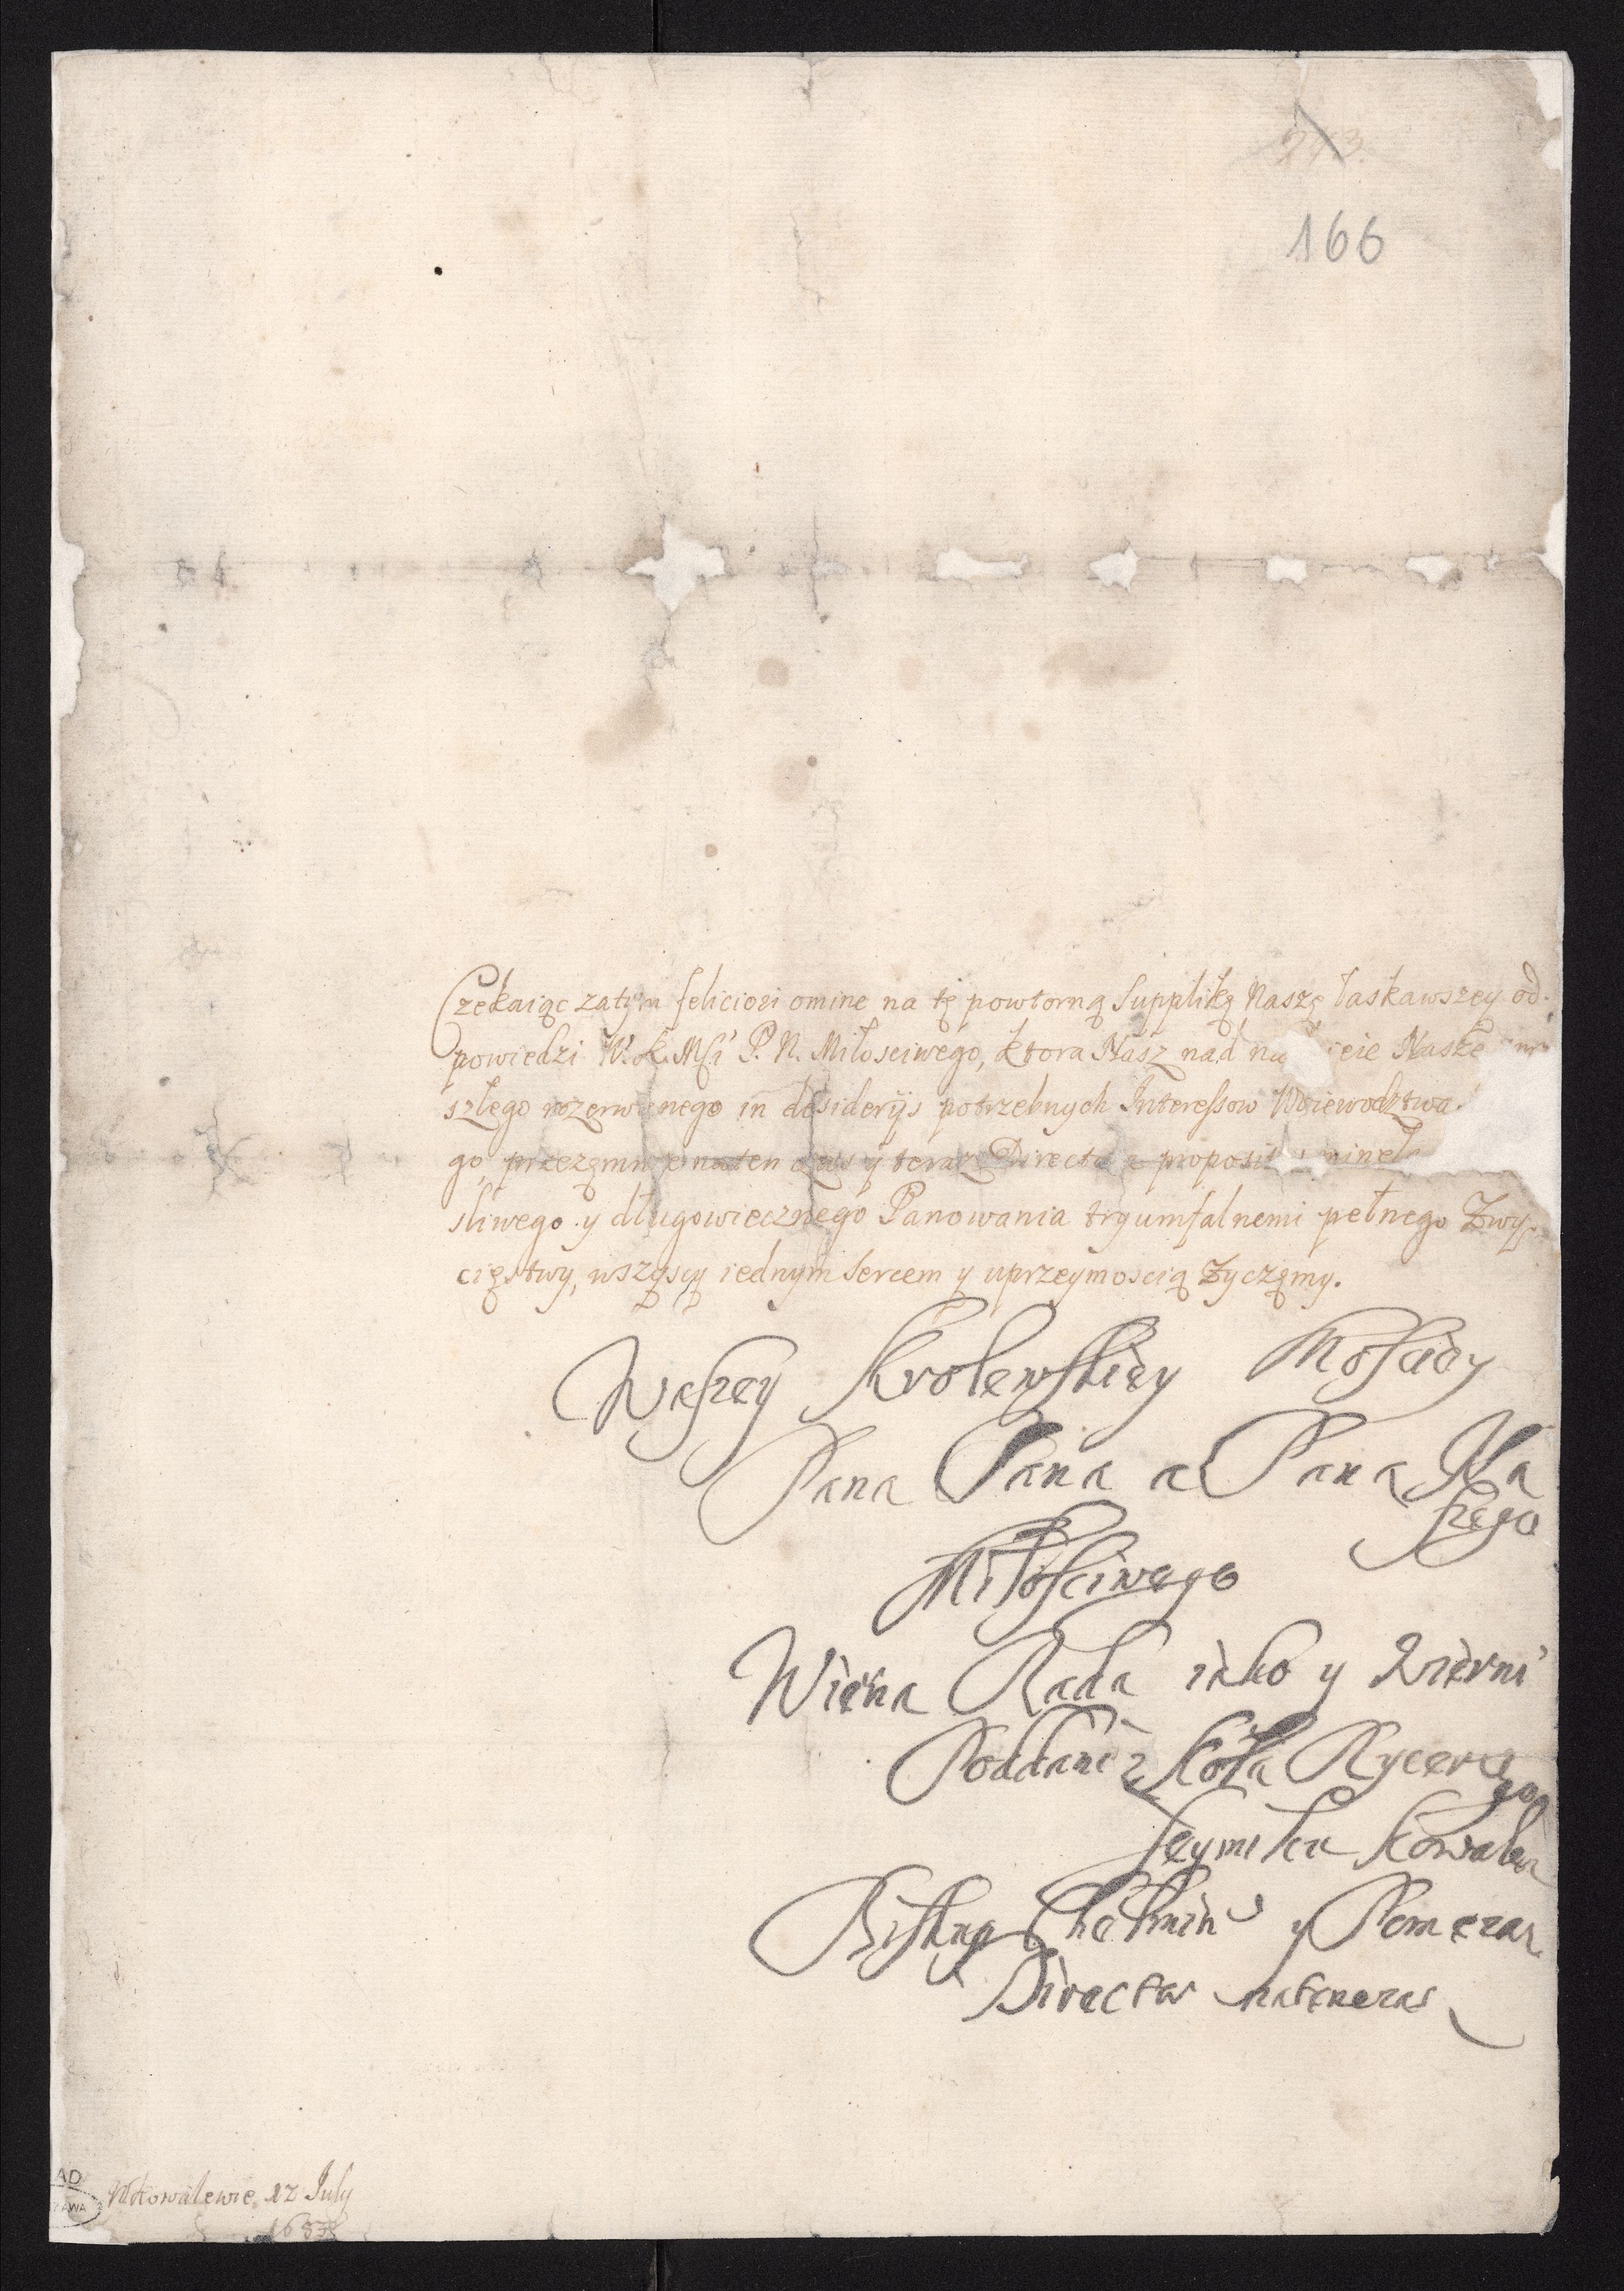 166
Czekaiąc zatym feliciori omine na tę powtorną Supplikę Naszę łaskawszey od-
powiedzi W. K. Msci P. N. Miłosciwego, ktora Nasz nad Nasze
szłego rozerwanego in desiderijs potrzebnych Interessow Woiewodztwa
go, przezemnie naten czas y teraz Directora
sliwego y długowiecznego Panowania tryumfalnemi pełnego Zwy-
cięstwy, wszyscy iednym sercem y uprzeymoscią Zyczęmy.
Waszey Krolewskiey Mosciey
Pana Pana a Pana Na
szego
Miłosciwego
Wierna Rada iako y Wierni
Poddani z Koła Rycerze
go
Seymiku Kowalew
Biskup Chełmin y Pomezan
Director natenczas
W Kowalewie, 12 July